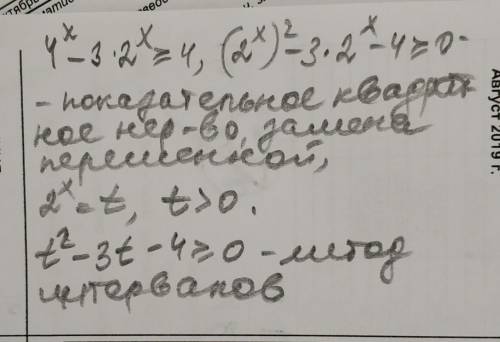 4ˣ - 3·2ˣ ≥ 4, (2ˣ)² - 3·2ˣ - 4 ≥ 0 -
- показательное квадрат
ное нер-во, замена
переменной,
2ˣ = t, t > 0.
t² - 3t - 4 ≥ 0 - метод
интервалов
Август 2019 г.